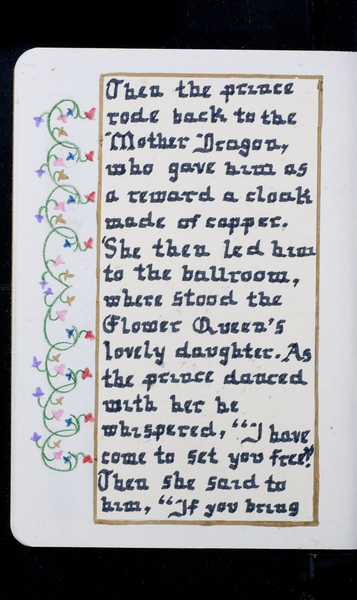 Then the prince
rode back to the
Mother Dragon,
who gave him as
a reward a cloak
made of copper.
She then led him
to the ballroom,
where stood the
Flower Queen's
lovely daughter. As
the prince danced
with her he
whispered, "I have
come to set you free."
Then she said to
him, "If you bring